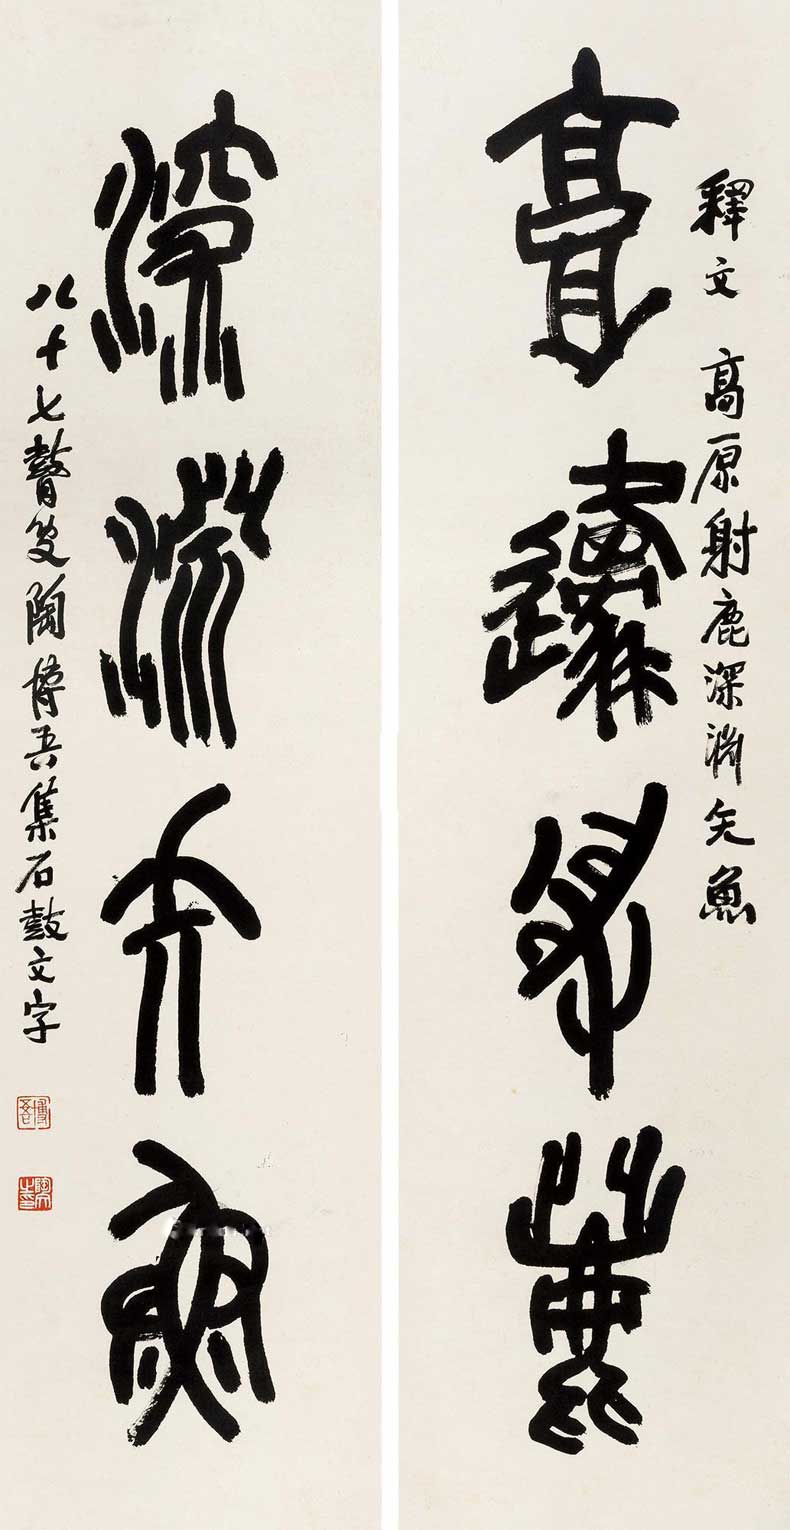 釋文 高原射鹿深渊矢魚
高邍射鹿
深淵矢魚
八十七瞽叟陶博吾集石鼓文字
博吾